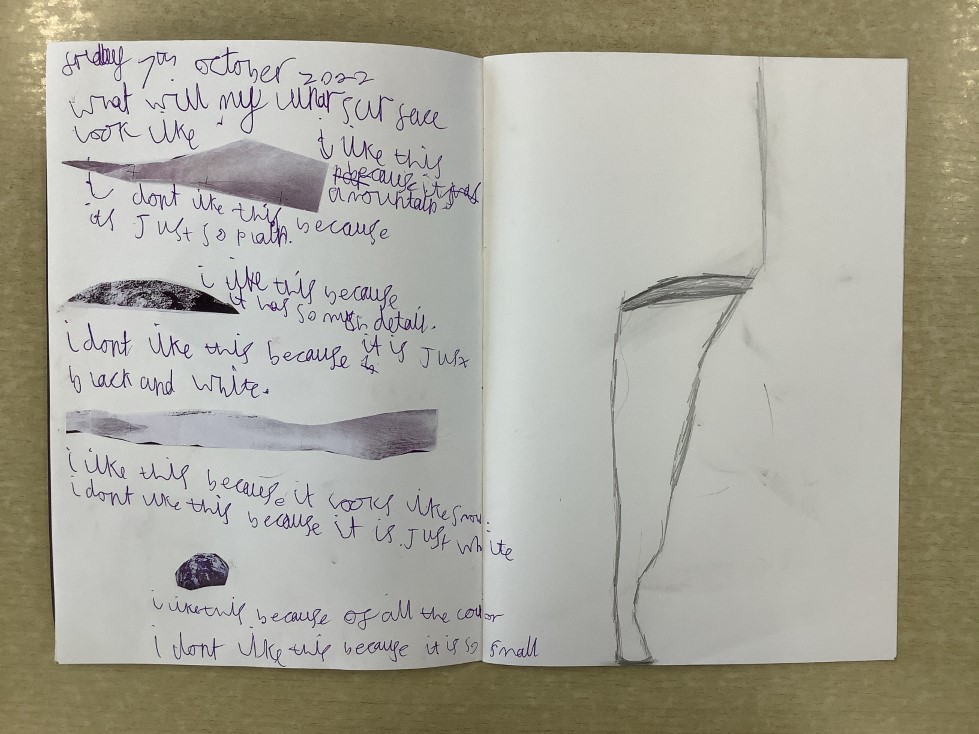 friday 7th october 2022
what will my lunar surface
look like
i like this
because it
a mountain
i dont like this because
its Just so plain.
i like this because
it has so much detail.
i dont like this because it is Just
black and white.
i like this because it looks like snow
i dont like this because it is Just white
i like this because of all the color
i dont like this because it is so small